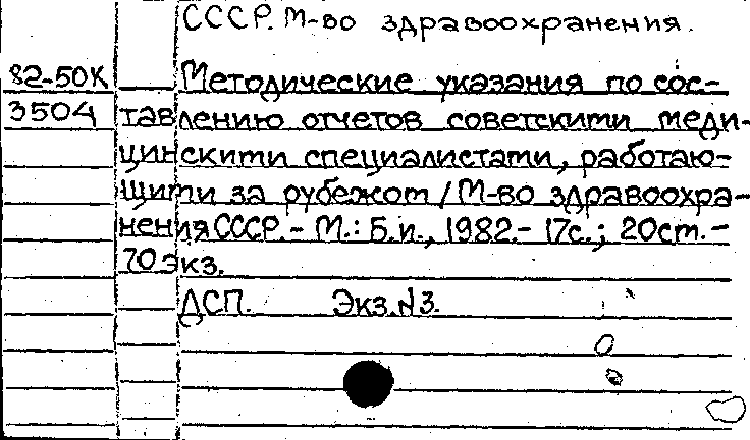 СССР. М-во здравоохранения.
82-50К Методические указания по сос-
3504 тавлению отчетов советскими меди-
цинскими специалистами, работаю-
щими за рубежом / М-во здравоохра-
нения СССР. - М.: Б.и., 1982. - 17с.; 20см. -
70 экз.
ДСП. Экз. N3.